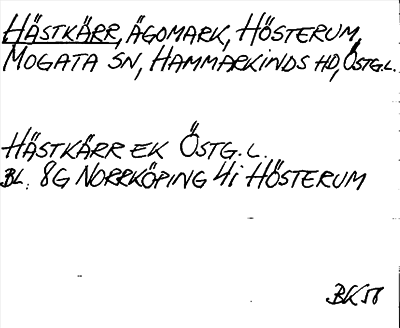 HÄSTKÄRR, ÄGOMARK, HÖSTERUM,
MOGATA SN, HAMMARKINDS HD, ÖSTG.L.
HÄSTKÄRR EK ÖSTG.L.
BL. 8G NORRKÖPING 4i HÖSTERUM
BK58